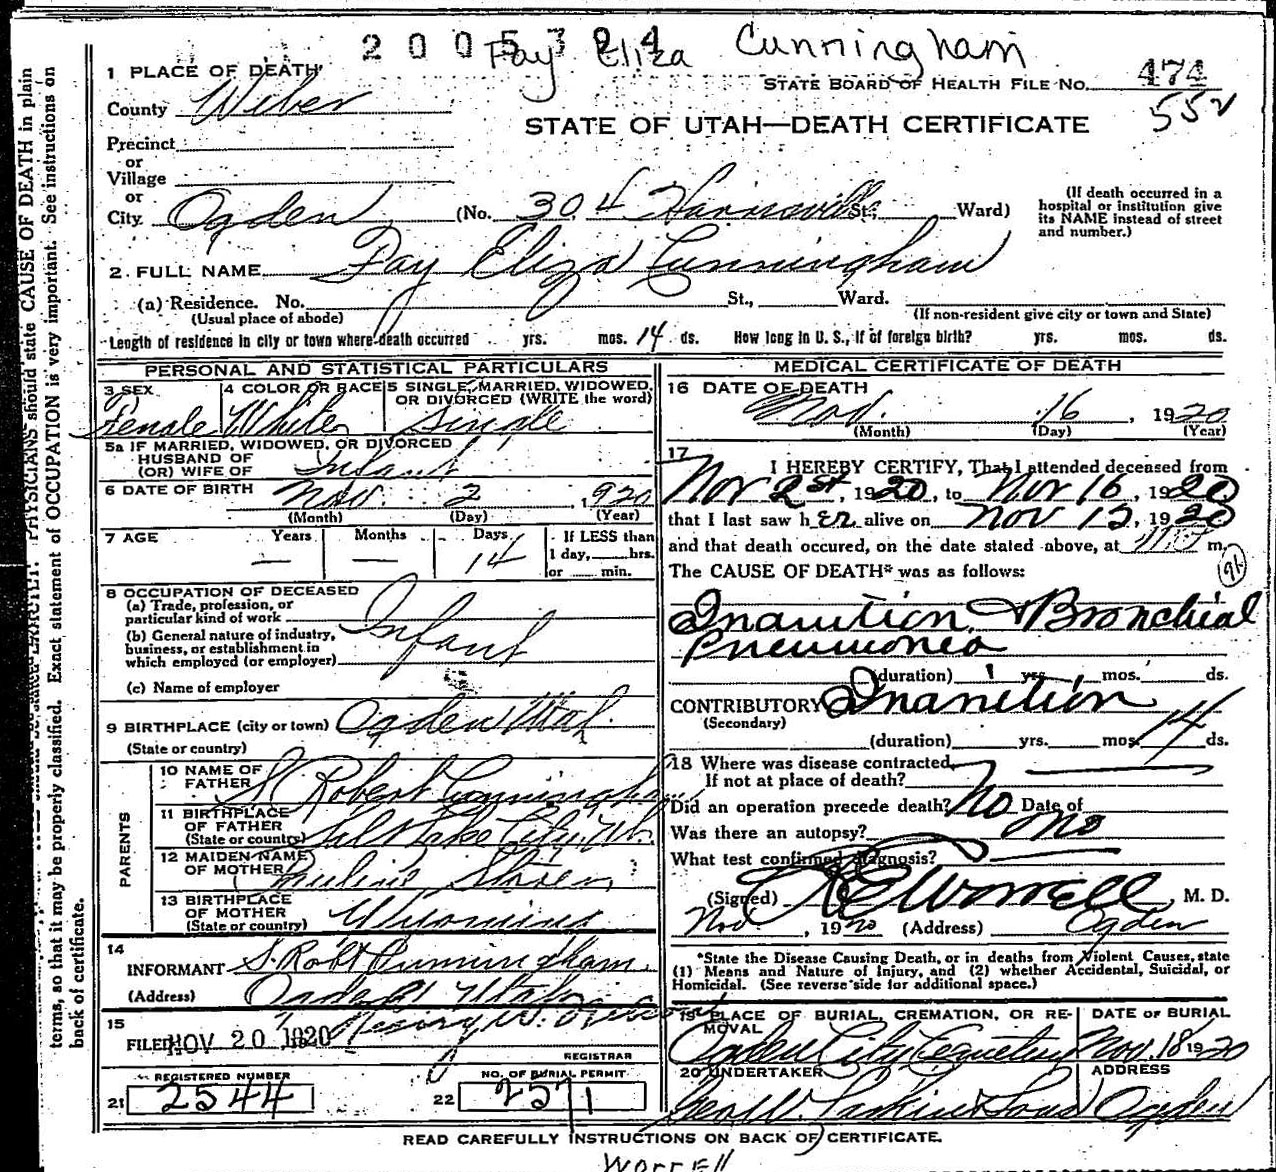 2005724
Fay Eliza Cunningham
1 PLACE OF DEATH
STATE BOARD OF HEALTH FILE No. 474
County Weber
552
STATE OF UTAH—DEATH CERTIFICATE
Precinct
or
Village
or
City Ogden (No. 304 Harrisville St; Ward)
(If death occurred in a hospital or institution give its NAME instead of street and number.)
2. FULL NAME Fay Eliza Cunningham
(a) Residence. No. St., Ward.
(Usual place of abode) (If non-resident give city or town and State)
Length of residence in city or town where death occurred yrs. mos. 14 ds. How long in U. S., if of foreign birth? yrs. mos. ds.
PERSONAL AND STATISTICAL PARTICULARS
3 SEX 4 COLOR OR RACE 5 SINGLE, MARRIED, WIDOWED,
OR DIVORCED (WRITE the word)
Female White Single
5a IF MARRIED, WIDOWED, OR DIVORCED
HUSBAND OF
(OR) WIFE OF Infant
6 DATE OF BIRTH Nov. 2, 1920
(Month) (Day) (Year)
7 AGE Years Months Days If LESS than
— — 14 1 day, hrs.
or min.
8 OCCUPATION OF DECEASED
(a) Trade, profession, or
particular kind of work Infant
(b) General nature of industry,
business, or establishment in
which employed (or employer)
(c) Name of employer
9 BIRTHPLACE (city or town) Ogden Utah
(State or country)
PARENTS
10 NAME OF
FATHER S. Robert Cunningham
11 BIRTHPLACE
OF FATHER
(State or country) Salt Lake City, Ut.
12 MAIDEN NAME
OF MOTHER
13 BIRTHPLACE
OF MOTHER
(State or country) Wyoming
14
INFORMANT S. Robt Cunningham
(Address) Ogden Utah
15
FILED NOV 20 1920
REGISTRAR
REGISTERED NUMBER NO. OF BURIAL PERMIT
21 2544 22 2571
MEDICAL CERTIFICATE OF DEATH
16 DATE OF DEATH
Nov. 16, 1920
(Month) (Day) (Year)
17
I HEREBY CERTIFY, That I attended deceased from
Nov 2st, 1920, to Nov 16, 1920
that I last saw her alive on Nov 15, 1920
and that death occured, on the date stated above, at m.
The CAUSE OF DEATH* was as follows:
91
Inanition & Bronchial
Pneumonea
(duration) 1 yrs. mos. ds.
CONTRIBUTORY Inanition
(Secondary)
(duration) yrs. mos. 14 ds.
18 Where was disease contracted
If not at place of death?
Did an operation precede death? No Date of
Was there an autopsy? no
What test confirmed diagnosis?
(Signed) R E Worrell M. D.
Nov, 1920 (Address) Ogden
*State the Disease Causing Death, or in deaths from Violent Causes, state
(1) Means and Nature of Injury, and (2) whether Accidental, Suicidal, or
Homicidal. (See reverse side for additional space.)
19 PLACE OF BURIAL, CREMATION, OR RE- DATE OF BURIAL
MOVAL
Ogden City Cemetery Nov. 18 1920
20 UNDERTAKER ADDRESS
Larkin & Sons Ogden
READ CAREFULLY INSTRUCTIONS ON BACK OF CERTIFICATE.
Worrell
PHYSICIANS should state CAUSE OF DEATH in plain
terms, so that it may be properly classified. Exact statement of OCCUPATION is very important. See instructions on
back of certificate.